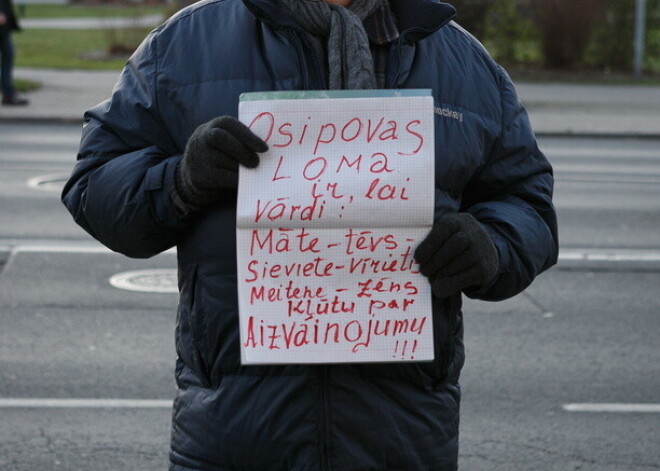 Osipovas
LOMA
ir, lai
vārdi:
Māte-tēvs-
Sieviete-vīrietis
Meitene-zēns
Kļūtu par
Aizvainojumu
!!!